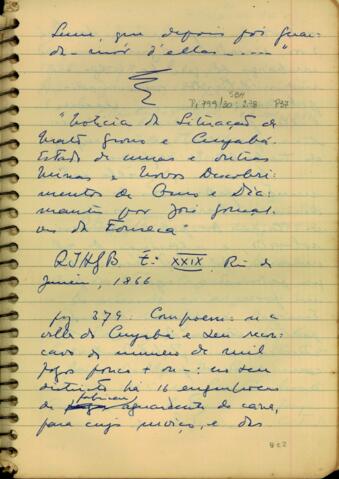 Leme, que depois foi guar-
da-mór d'ellas ....."
SBH
Pi 799/30: 278 P37
"Noticia da Situação de
Matto Grosso e Cuyabá.
Estado de umas e outras
Minas e Novos Descobri-
mentos de Ouro e Dia-
mantes por José Gonsal-
ves da Fonseca"
RIHGB T: XXIX. Rio de
Janeiro, 1866
pg 379: Compoem-se a
villa do Cuyabá e seu recon-
cavo de numero de mil
fogos pouco + ou -: no seu
districto há 16 engenhocas
de fabricar aguardente de cana,
para cujo moviço, e das